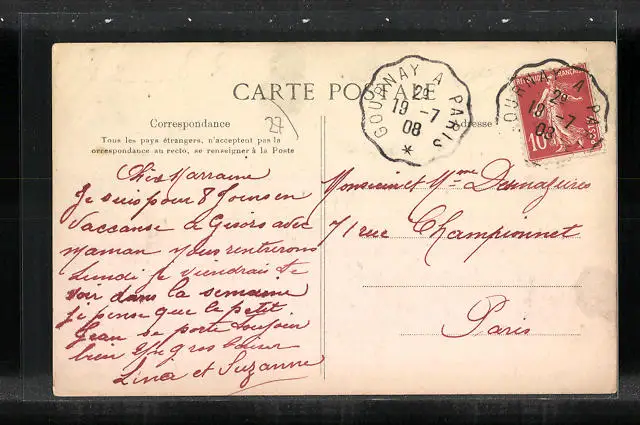 CARTE POSTALE
Correspondance
Tous les pays étrangers, n'acceptent pas la
correspondance au recto, se renseigner à la Poste
Adresse
27
GOURNAY A PARIS
2º
19 -7
08
*
GOURNAY A PARIS
2º
19 -7
08
RÉPUBLIQUE FRANÇAISE
10
POSTES
Chès Marraine
Je suis pour 8 Jours en
vaccanse a Gisors avec
maman nous rentrerons
Lundi je viendrais te
voir dans la semaine
je pense que le petit
Jean se porte toujour
bien gros baiser
Lina et Suzanne
Monsieur et Mme Desmazieres
71 rue Championnet
Paris